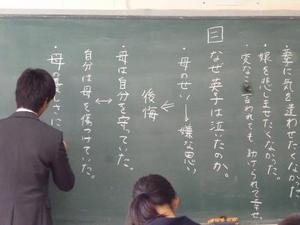 ・妻に気を遣わせたくなかった
・娘を悲しませたくなかった。
・変なこと言われても助けられて幸せ。
目
なぜ英子は泣いたのか。
・母のせい―嫌な思い
後悔
・母は自分を守っていた。
自分は母を傷つけていた。
・母の